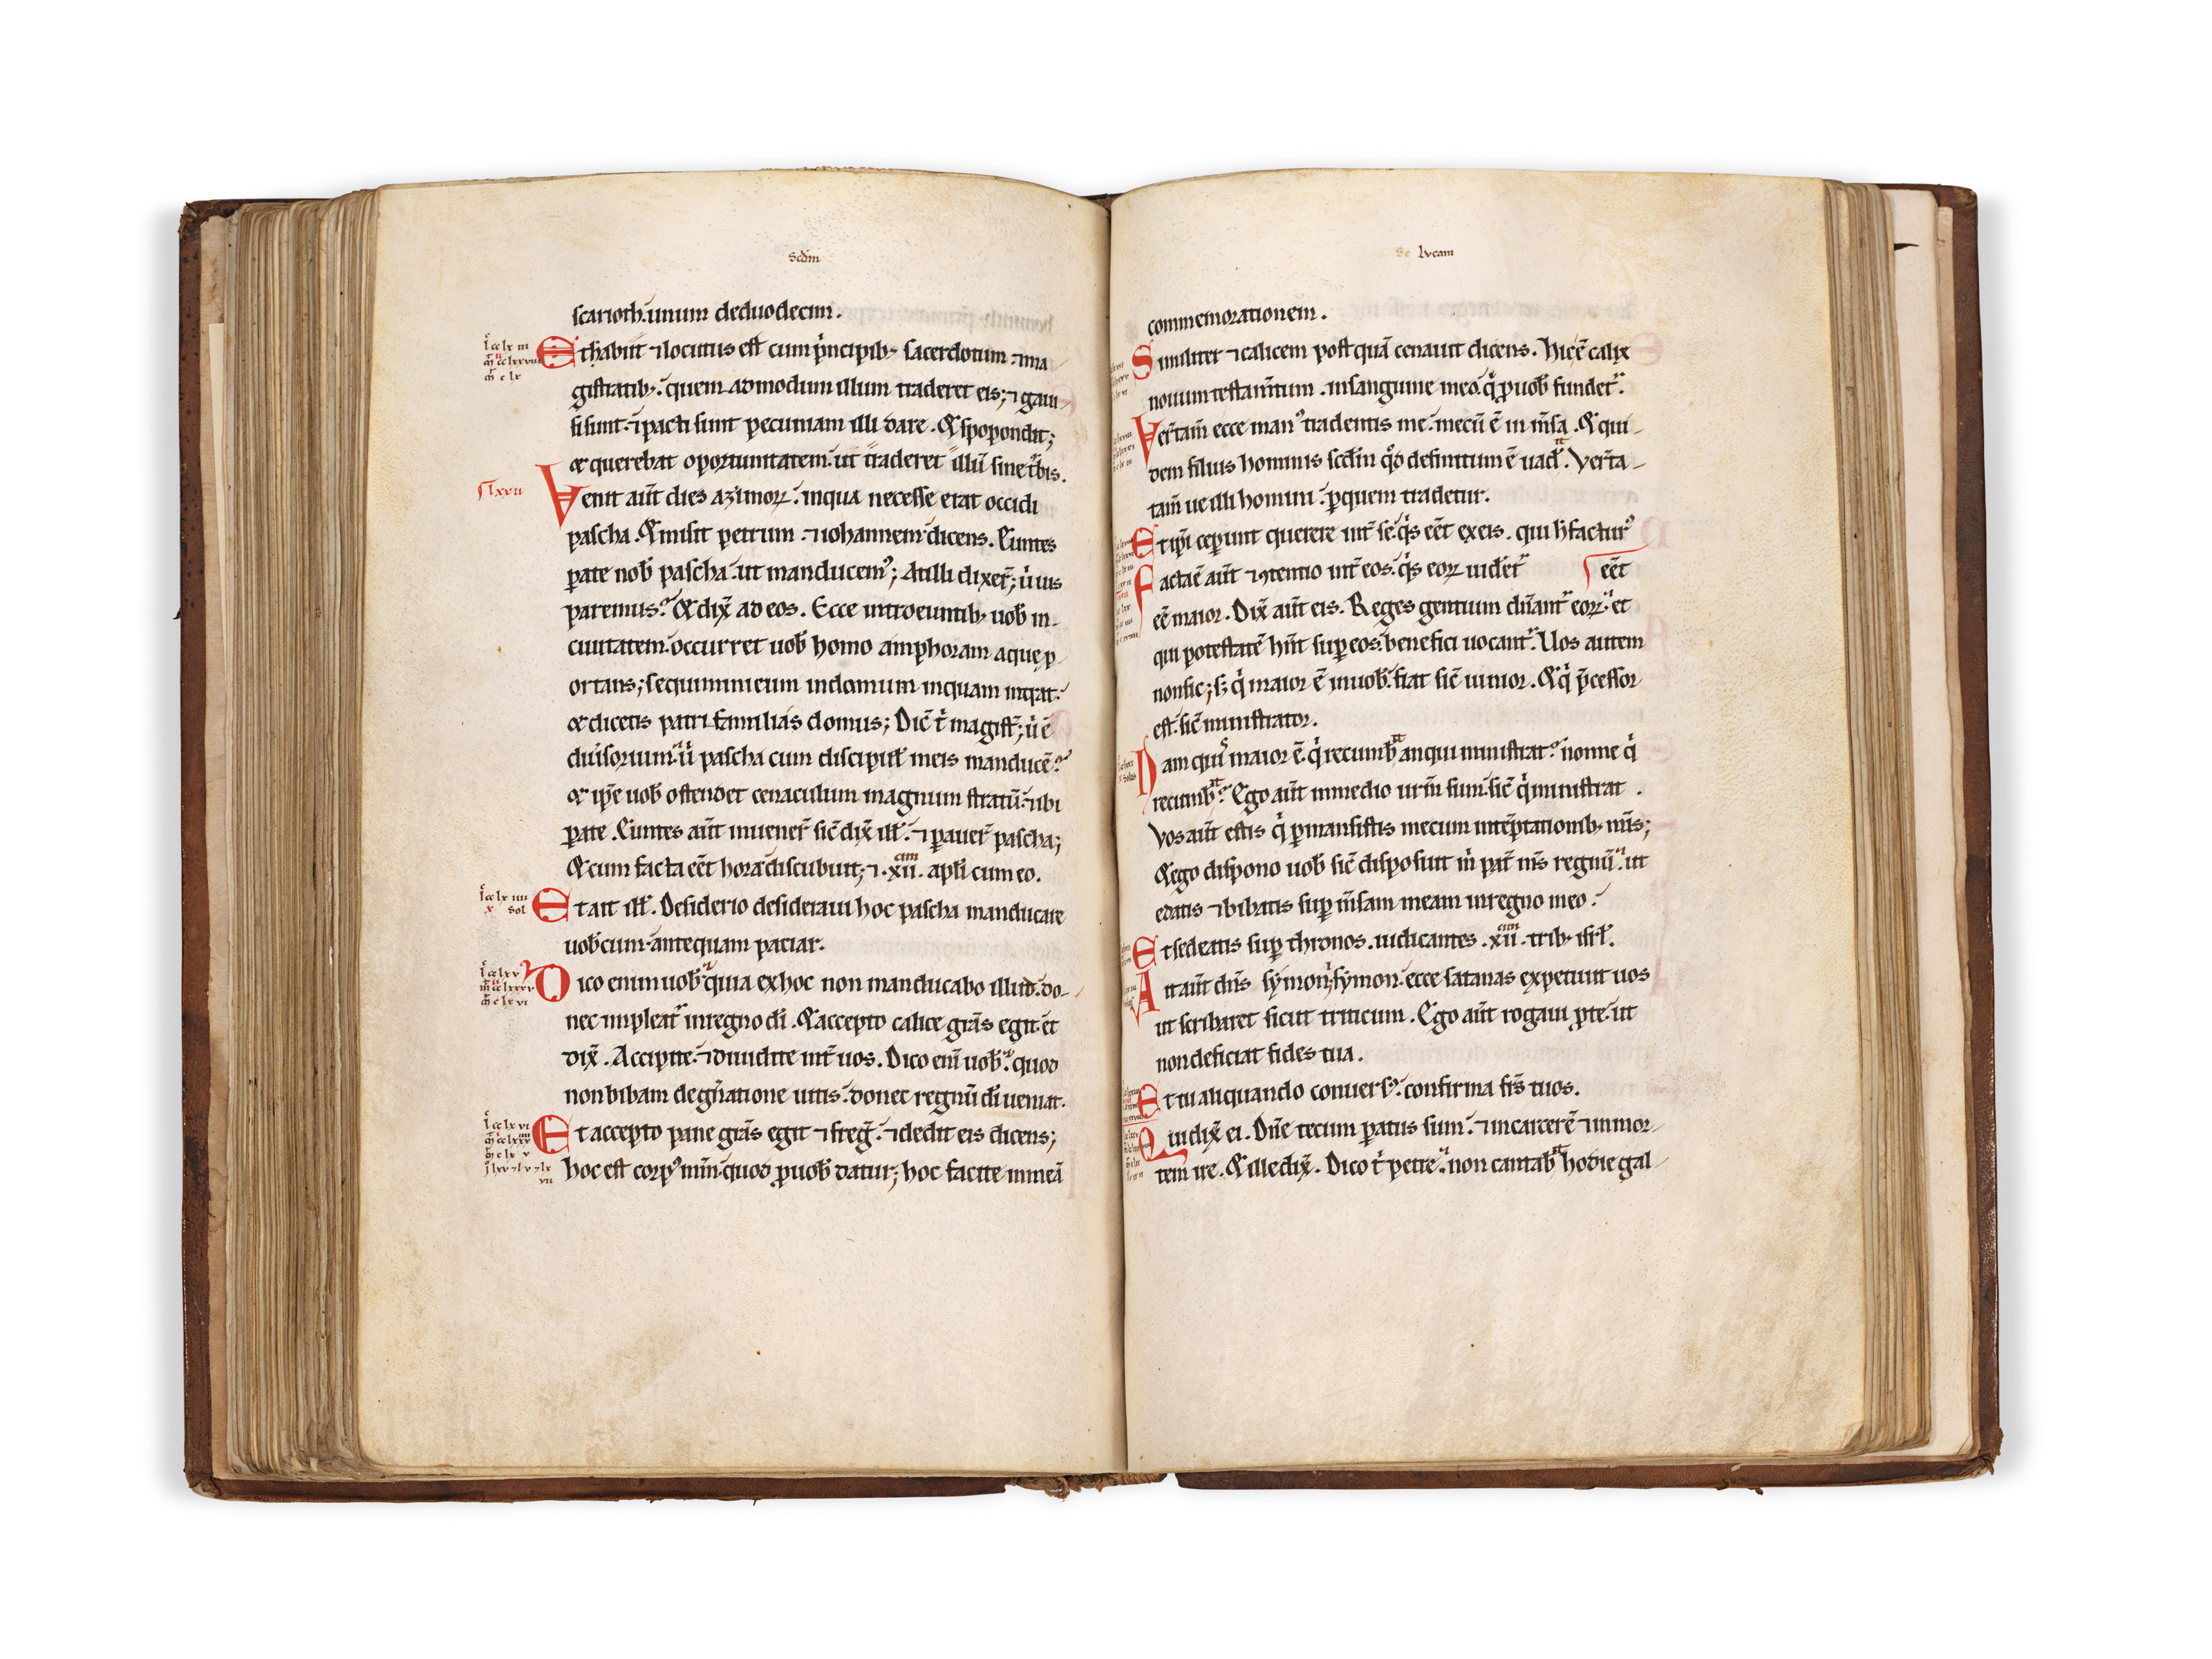 scdm
scarioth. unum deduodecim.
l cc lx iii
m cc lxxviii
m c lx
Et habiit ⁊ locutus est cum p̓ncipib; sacerdotum ⁊ ma
gistratib;. quem ad modum illum traderet eis; ⁊ gaui-
si sunt. ⁊ pacti sunt pecuniam illi dare. & spopondit;
& querebat oportunitatem. ut traderet illū sine t̓bis.
lxxii
Venit aūt dies azimoꝝ. inqua necesse erat occidi
pascha. & misit petrum ⁊ iohannem dicens. Euntes
ꝑate nob̄ pascha. ut manducem᾿; At illi dixer̄; u̓ uis
paremus? & dix̄ ad eos. Ecce introeuntib; uob̄ in-
ciuitatem. occurret uob̄ homo amphoram aquę p-
ortans; sequimini eum indomum inquam int̓rat.
& dicetis patri familias domus; Dic̄ t̓ magist̄; u̓ ē
diuisorium. u̓ pascha cum discipul̄ meis manducē?
& ip̄e uob̄ ostendet cenaculum magnum stratū. ibi
ꝑate. Euntes aūt inuener̄ sic̄ dix̄ ill̄. ⁊ ꝑauer̄ pascha;
& cum facta eēt hora discubuit; ⁊ .xii.cim apl̄i cum eo.
l cc lx iiii
x sol
Et ait ill̄. Desiderio desideraui hoc pascha manducare
uob̄cum. antequam patiar.
l cc lxv
m cc lxxxv
m c lxvi
Dico enim uob̄. quia exhoc non manducabo illud. do-
nec impleat᾿ inregno dī. & accepto calice grā̄s egit et
dix̄. Accipite. ⁊ diuidite int̄ uos. Dico eni̅ uob̄. quod
non bibam degn̄atione uitis. donec regnū dī ueniat.
l cc lxvi
m cc lxxxiiii
m c lxv
i lxv ⁊ lv ⁊ lx
vii
Et accepto pane grās egit ⁊ freḡ. ⁊ dedit eis dicens;
hoc est corp᾿ mm̄. quod ꝓuob̄ datur; hoc facite inmeā
lvcam
commemorationem.
Similiter ⁊ calicem post quā cenauit dicens. Hic ē calix
nouum testam̄tum. insanguine meo. q̓ ꝓuob̄ fundet᾿.
Ver̄tam̄ ecce man᾿ tradentis me. mecū ē in m̄sa. & qui-
dem filius hominis scd̄m q᾿d definitum ē uad̄it. Ver̄ta-
tam̄ ue illi homini. ꝑquem tradetur.
Et ip̄i ceperunt querere int̄ se. q̓s eēt exeis. qui h̓ factur᾿
Facta ē aūt ⁊ ꝯtentio int̄ eos. q̓s eoꝝ uider̄et᾿ eēt
eē maior. Dix̄ aūt eis. Reges gentium dn̄ant᾿ eoꝝ. et
qui potestatē hn̄t suꝑ eos. benefici uocant᾿. Uos autem
non sic; s; q̓ maior ē inuob̄. fiat sic̄ iunior. & q̓ p̄cessor
est. sic̄ ministrator.
Nam quis maior ē. q̓ recumb̄it an qui ministrat? nonne q̓
recumb̄it? Ego aūt inmedio ur̄m sum. sic̄ q̓ ministrat.
Vos aūt estis q̓ ꝑmansistis mecum inteptationib; m̄is;
& ego dispono uob̄ sic̄ disposuit m̓ pat̄ m̄s regnū. ut
edatis ⁊ bibatis suꝑ m̄sam meam inregno meo.
Et sedeatis suꝑ thronos. iudicantes .xii.cim trib; isr̄l.
Ait aūt dn̄s symoni symon. ecce satanas expetiuit uos
ut scribaret sicut triticum. Ego aūt rogaui ꝓte. ut
non deficiat fides tua.
Et tu aliquando conuers᾿. confirma fr̄s tuos.
Qui dix̄ ei. Dn̄e tecum ꝑatus sum. ⁊ incarcerē ⁊ inmor-
tem ire. & ille dix̄. Dico t̓ petre. non cantab̄it hodie gal-